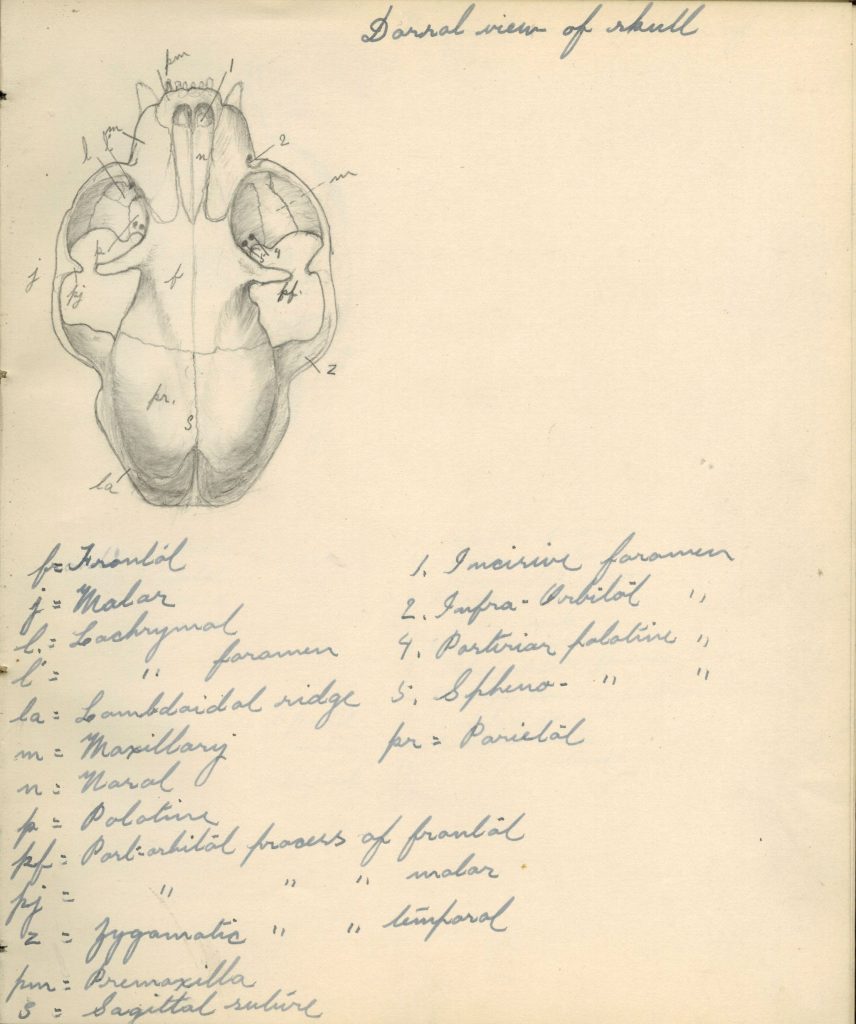 Dorsal view of skull
pm
1
m
l'
l
n
2
m
p
5
4
j
pj
f
pf.
z
pr.
s
la
f = Frontal
j = Malar
l. = Lachrymal
l' = " foramen
la = Lambdoidal ridge
m = Maxillary
n = Nasal
p = Palatine
pf = Post-orbital process of frontal
pj = " " " malar
z = Zygomatic " " temporal
pm = Premaxilla
s = Sagittal suture
1. Incisive foramen
2. Infra-Orbital "
4. Posterior palatine "
5. Spheno- " "
pr = Parietal